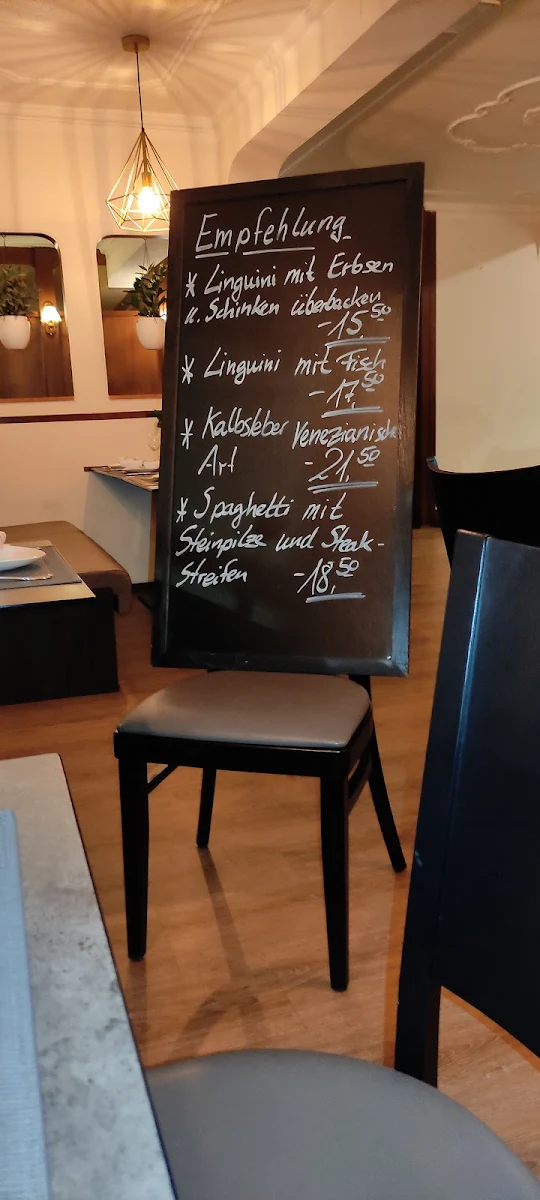 Empfehlung
* Linguini mit Erbsen
u. Schinken überbacken
-15,50
* Linguini mit Fisch
-17,50
* Kalbsleber Venezianische
Art -21,50
* Spaghetti mit
Steinpilze und Steak-
Streifen -18,50